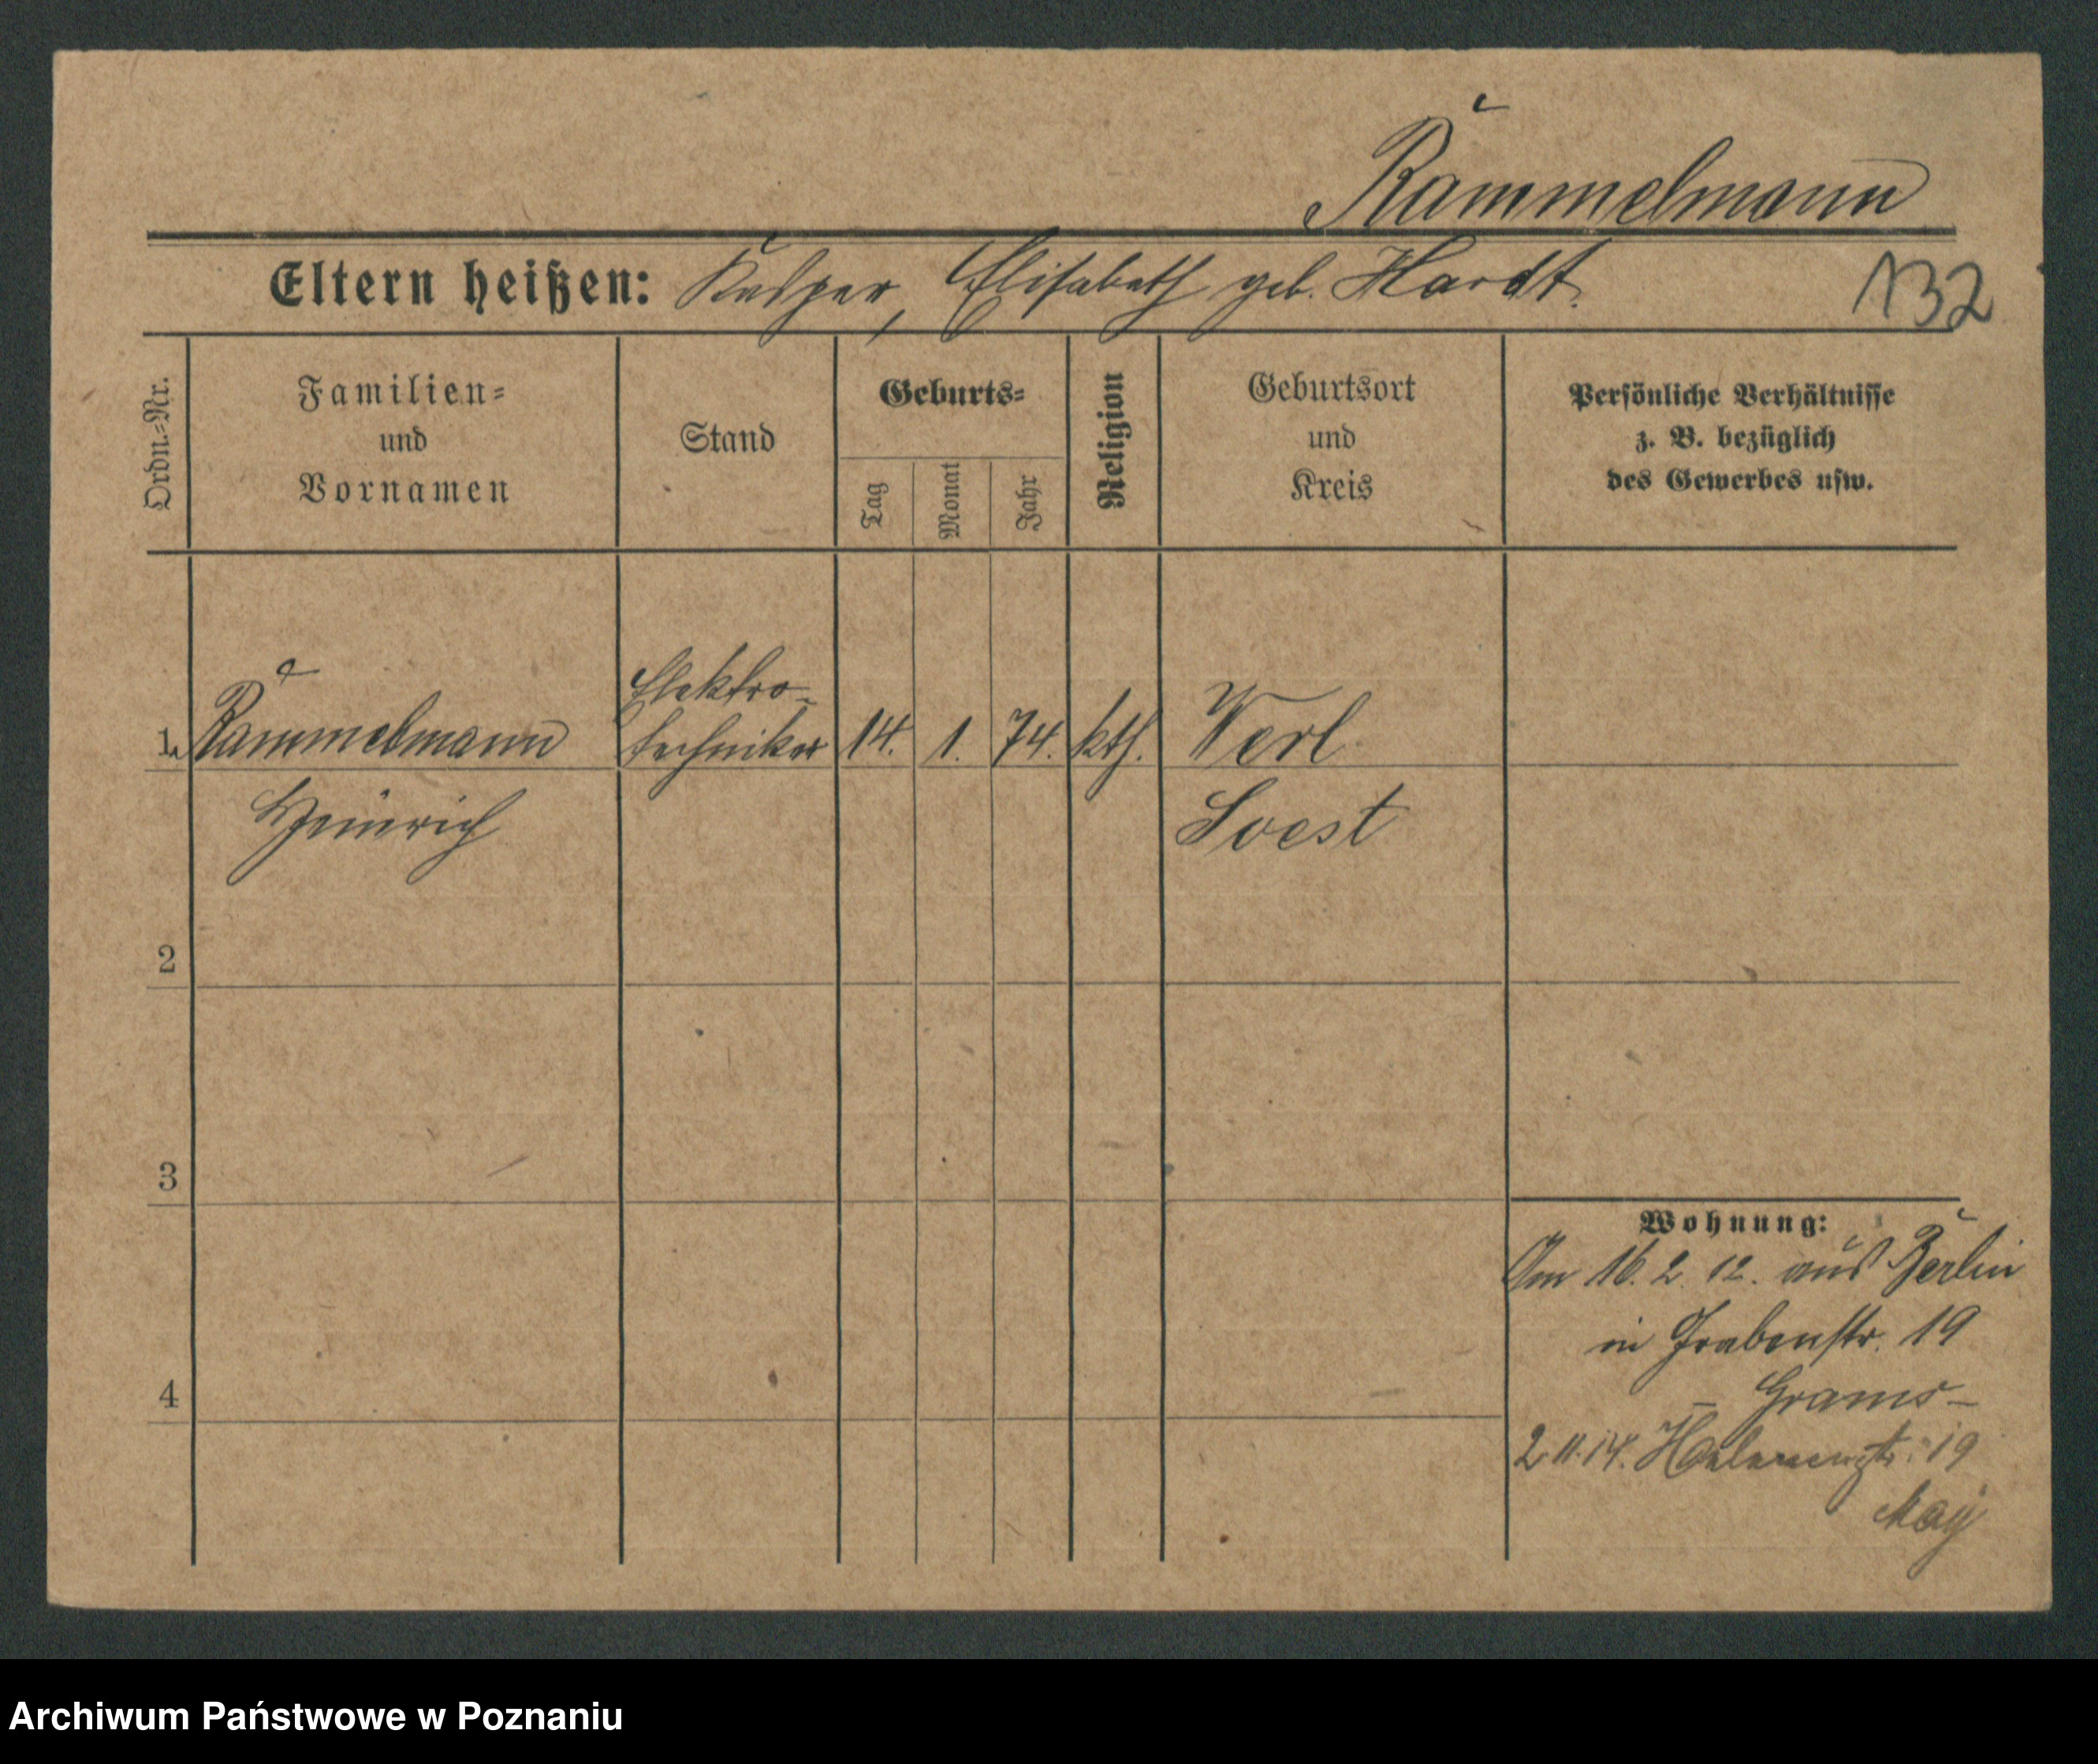 Rammelmann
Eltern heißen: Kasper, Elisabeth geb. Hardt.
132
Ordn.-Nr.
Familien-
und
Vornamen
Stand
Geburts-
Tag
Monat
Jahr
Religion
Geburtsort
und
Kreis
Persönliche Verhältnisse
z. B. bezüglich
des Gewerbes usw.
1. Rammelmann Elektro-
techniker 14. 1. 74. kth. Werl
Heinrich Soest
2
3
4
Wohnung:
Am 16. 2. 12. aus Berlin
in Grabenstr. 19
– Grams –
2. 11. 14. 19
May
Archiwum Państwowe w Poznaniu